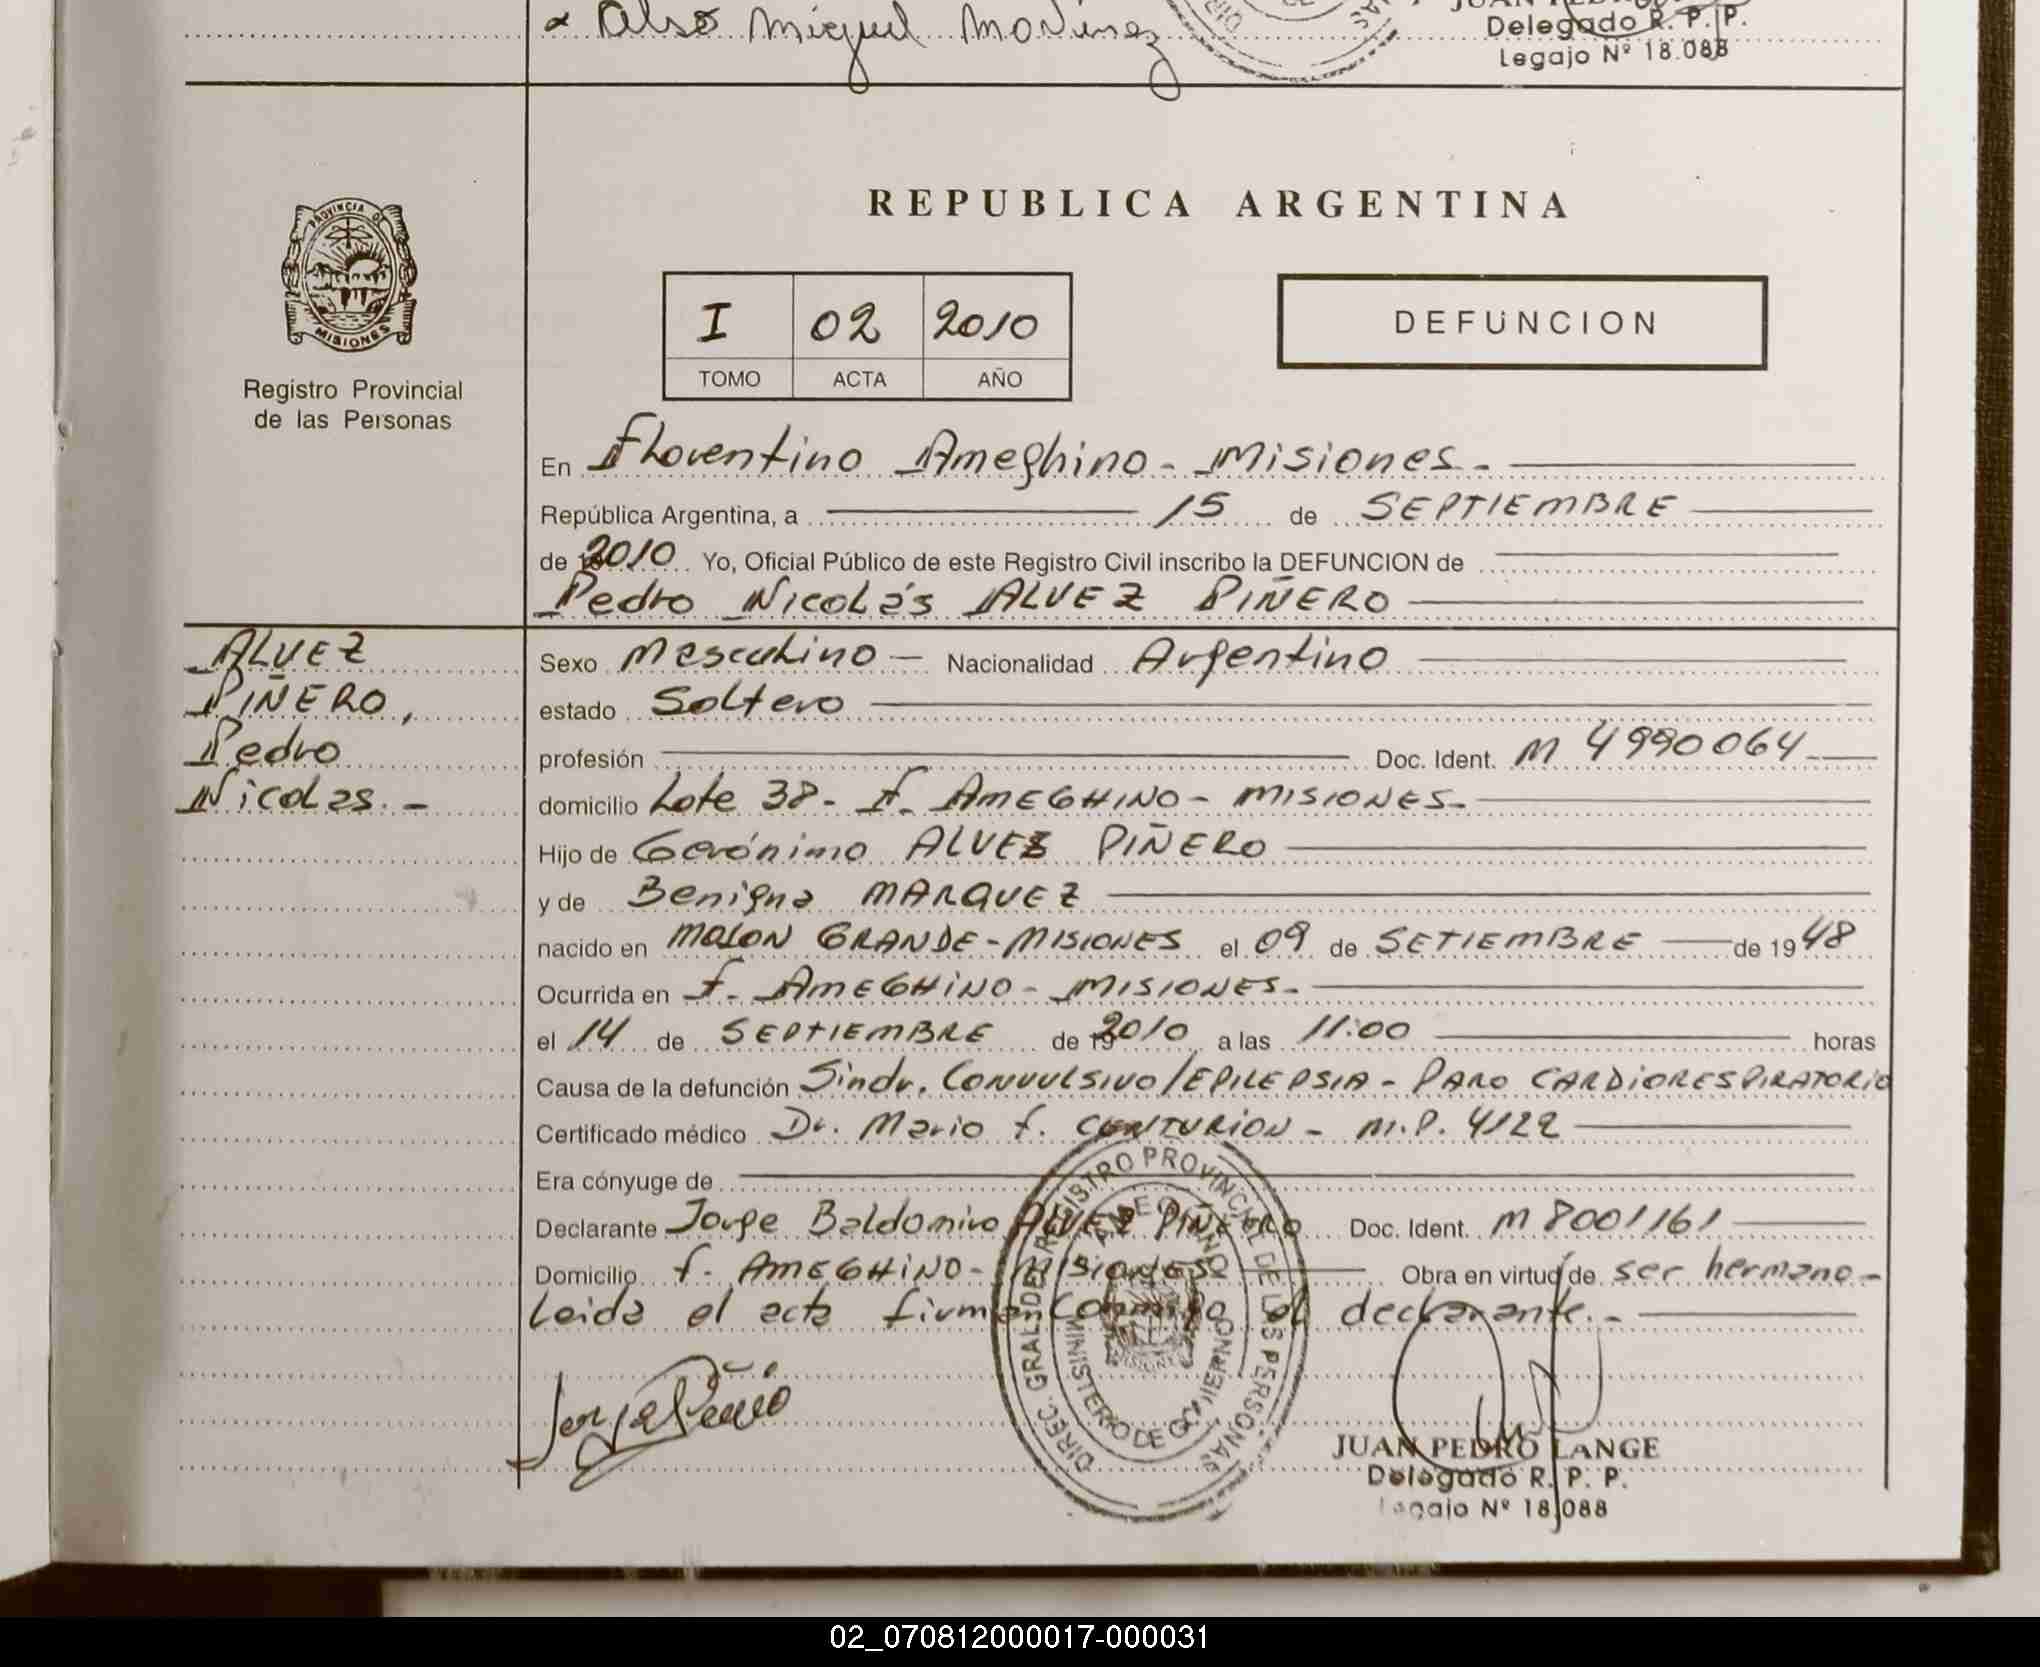 Also Miguel Martinez
Delegado R. P. P.
Legajo Nº 18.088
PROVINCIA DE
MISIONES
Registro Provincial
de las Personas
REPUBLICA ARGENTINA
I 02 2010
TOMO ACTA AÑO
DEFUNCION
En Florentino Ameghino - Misiones -
República Argentina, a 15 de SEPTIEMBRE
de 2010 Yo, Oficial Público de este Registro Civil inscribo la DEFUNCION de
Pedro Nicolás ALVEZ PIÑERO
ALVEZ
PIÑERO,
Pedro
Nicolas. -
Sexo Masculino - Nacionalidad Argentino
estado Soltero
profesión Doc. Ident. M 4990064
domicilio Lote 38 - F. AMEGHINO - MISIONES -
Hijo de Gerónimo ALVEZ PIÑERO
y de Benigna MARQUEZ
nacido en MOJON GRANDE - MISIONES el 09 de SETIEMBRE de 1948
Ocurrida en F. AMEGHINO - MISIONES -
el 14 de SEPTIEMBRE de 2010 a las 11:00 horas
Causa de la defunción Sindr. CONVULSIVO/EPILEPSIA - PARO CARDIORESPIRATORIO
Certificado médico Dr. Mario F. CENTURION - M.P. 4122
Era cónyuge de
Declarante Jorge Baldomiro ALVEZ PIÑERO Doc. Ident. M 8001161
Domicilio F. AMEGHINO - MISIONES Obra en virtud de ser hermano -
Leida el acta firma conmigo el declarante. -
DIREC. GRAL. DEL REGISTRO PROVINCIAL DE LAS PERSONAS
MINISTERIO DE GOBIERNO
JUAN PEDRO LANGE
Delegado R. P. P.
Legajo Nº 18.088
02_070812000017-000031